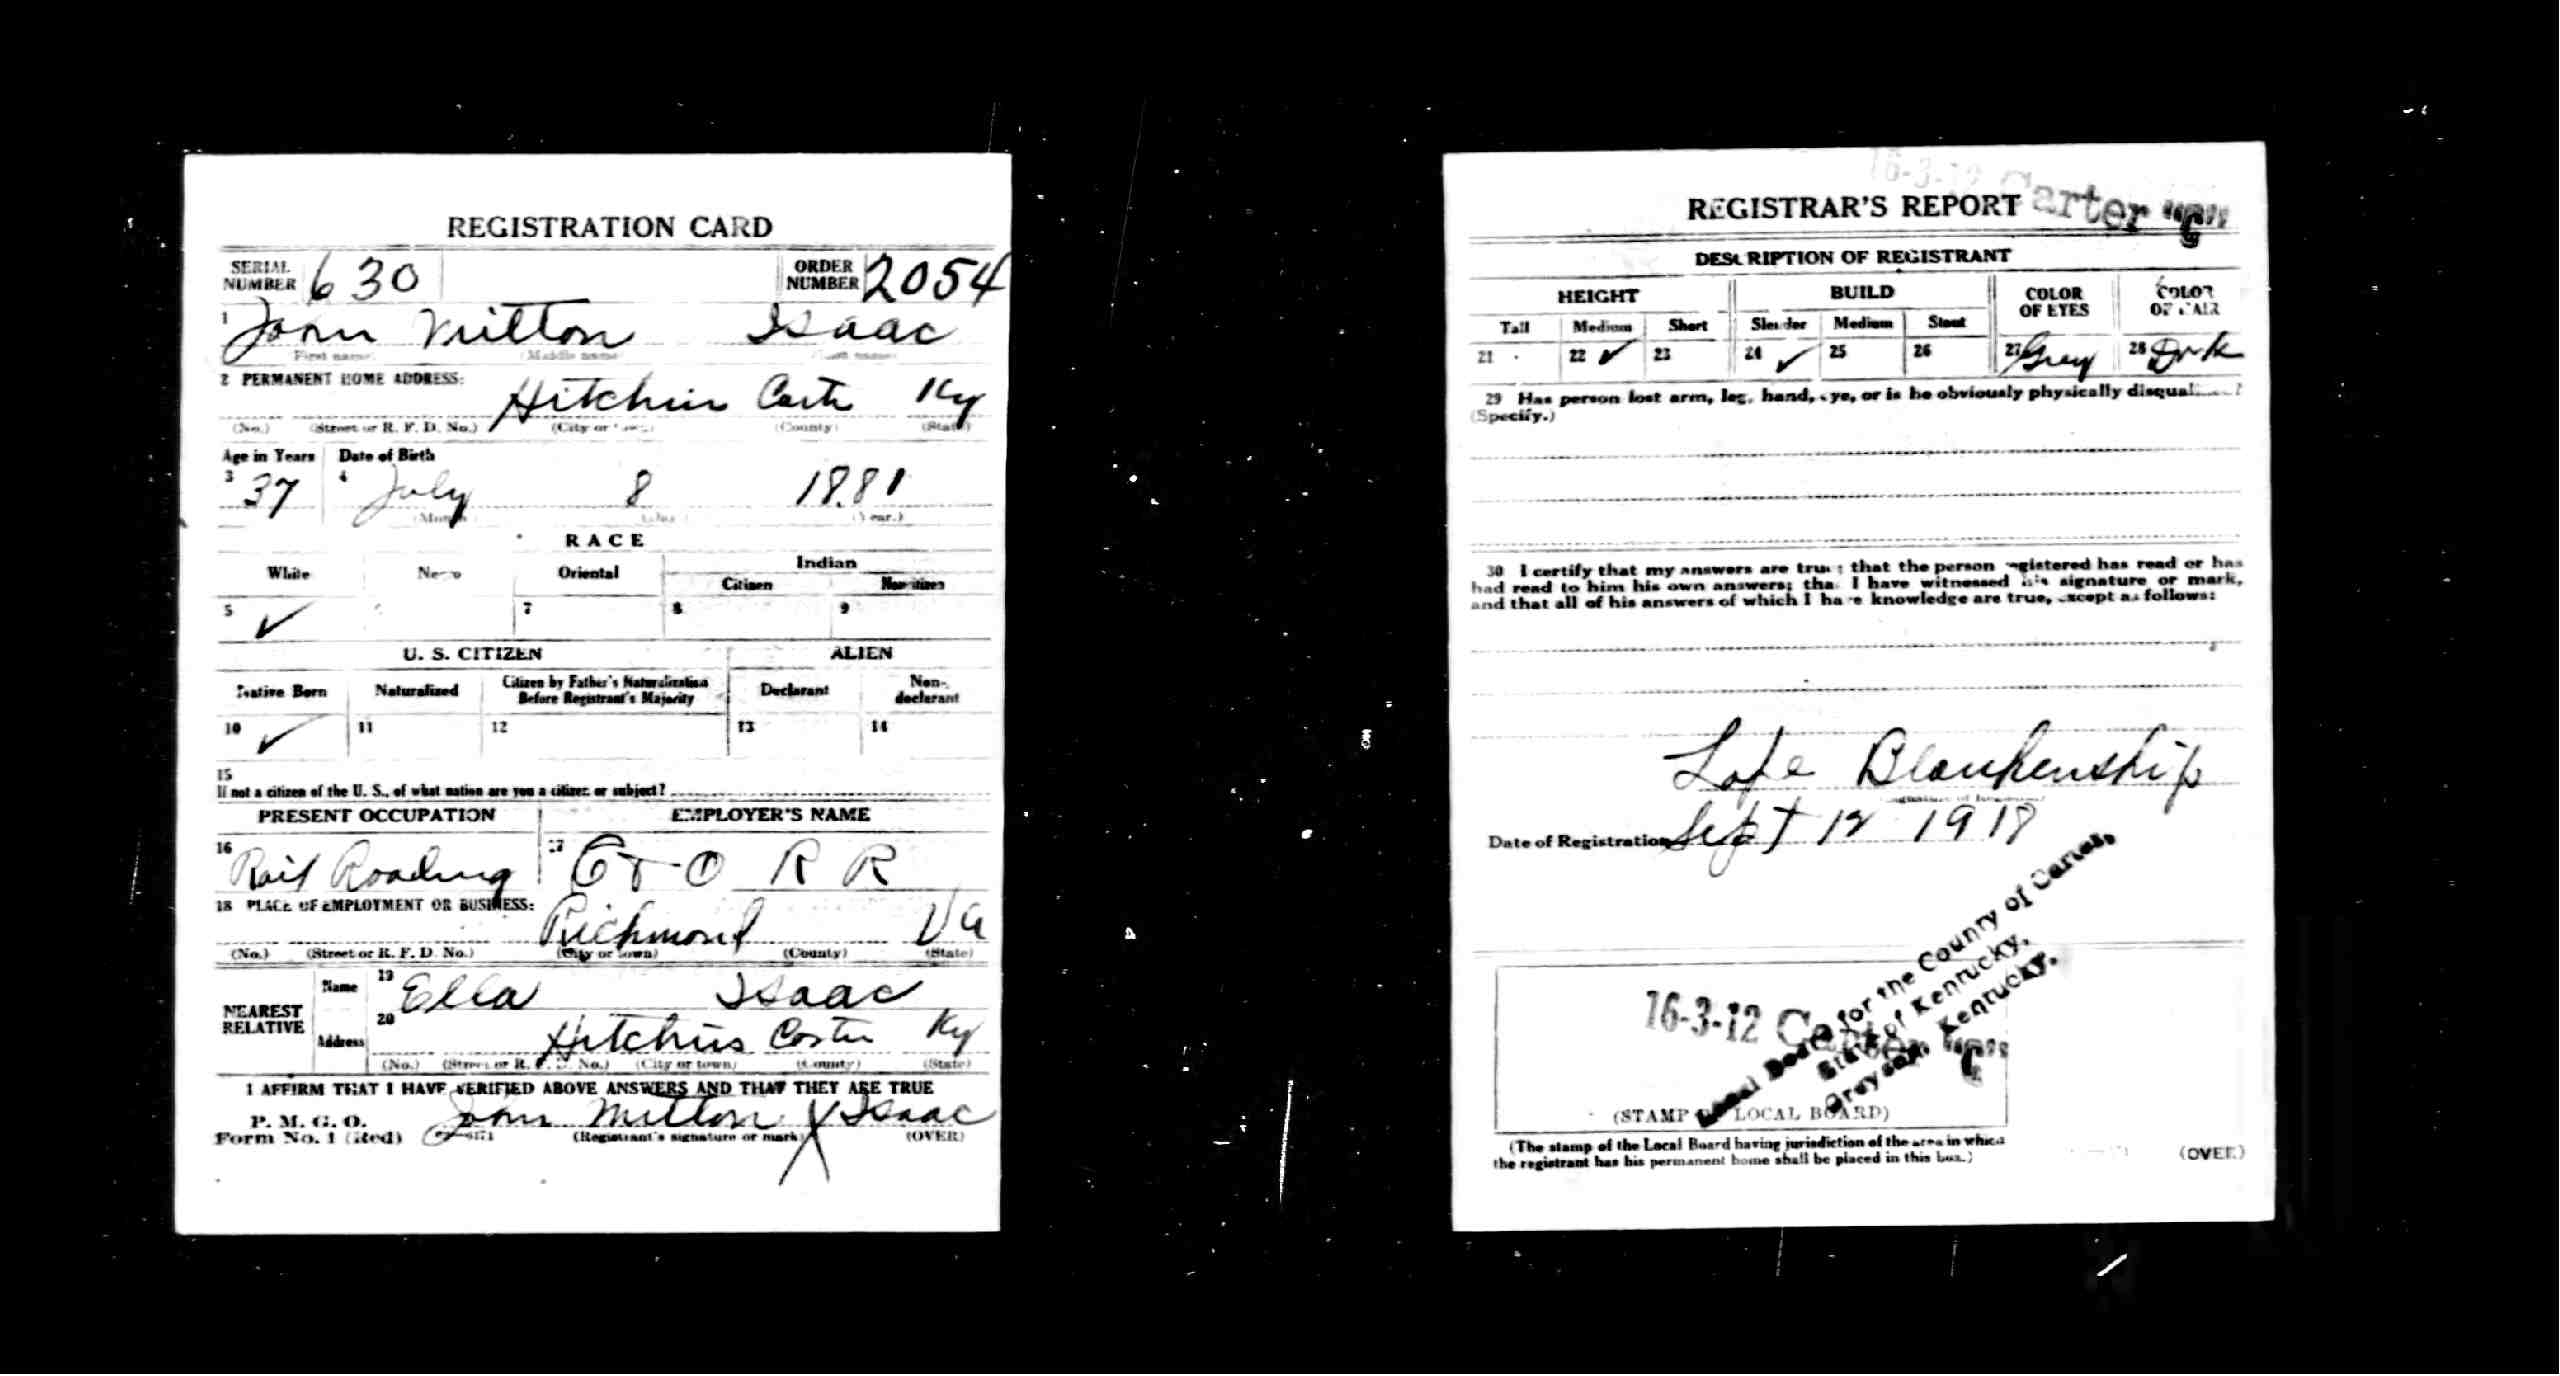 REGISTRATION CARD
SERIAL NUMBER 630 ORDER NUMBER 2054
1 John Milton Isaac
First name Middle name Last name
2 PERMANENT HOME ADDRESS:
Hitchins Carter Ky
(No.) (Street or R. F. D. No.) (City or town) (County) (State)
Age in Years Date of Birth
3 37 4 July 8 1881
(Month) (Day) (Year.)
RACE
White Negro Oriental Indian
Citizen Noncitizen
5 ✓ 7 8 9
U. S. CITIZEN ALIEN
Native Born Naturalized Citizen by Father's Naturalization Before Registrant's Majority Declarant Non-declarant
10 ✓ 11 12 13 14
15
If not a citizen of the U. S., of what nation are you a citizen or subject?
PRESENT OCCUPATION EMPLOYER'S NAME
16 Rail Roading 17 C + O R R
18 PLACE OF EMPLOYMENT OR BUSINESS:
Richmond Va
(No.) (Street or R. F. D. No.) (City or town) (County) (State)
NEAREST RELATIVE Name 19 Ella Isaac
Address 20 Hitchins Carter Ky
(No.) (Street or R. F. D. No.) (City or town) (County) (State)
I AFFIRM THAT I HAVE VERIFIED ABOVE ANSWERS AND THAT THEY ARE TRUE
P. M. G. O.
Form No. 1 (Red) John Milton X Isaac
(Registrant's signature or mark) (OVER)
16-3-12 Carter "C"
REGISTRAR'S REPORT
DESCRIPTION OF REGISTRANT
HEIGHT BUILD COLOR OF EYES COLOR OF HAIR
Tall Medium Short Slender Medium Stout
21 22 ✓ 23 24 ✓ 25 26 27 Grey 28 Drk
29 Has person lost arm, leg, hand, eye, or is he obviously physically disqualified?
(Specify.)
30 I certify that my answers are true; that the person registered has read or has
had read to him his own answers; that I have witnessed his signature or mark,
and that all of his answers of which I have knowledge are true, except as follows:
Blankenship
Date of Registration Sept 12 1918
Local Board for the County of Carter,
State of Kentucky,
Grayson, Kentucky.
16-3-12 Carter "C"
(STAMP OF LOCAL BOARD)
(The stamp of the Local Board having jurisdiction of the area in which
the registrant has his permanent home shall be placed in this box.)
(OVER)